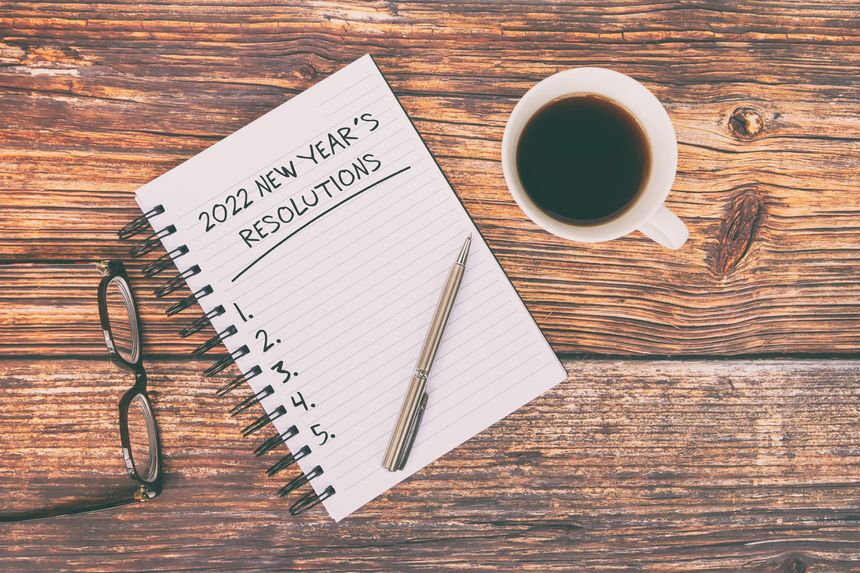 2022 NEW YEAR'S
RESOLUTIONS
1.
2.
3.
4.
5.